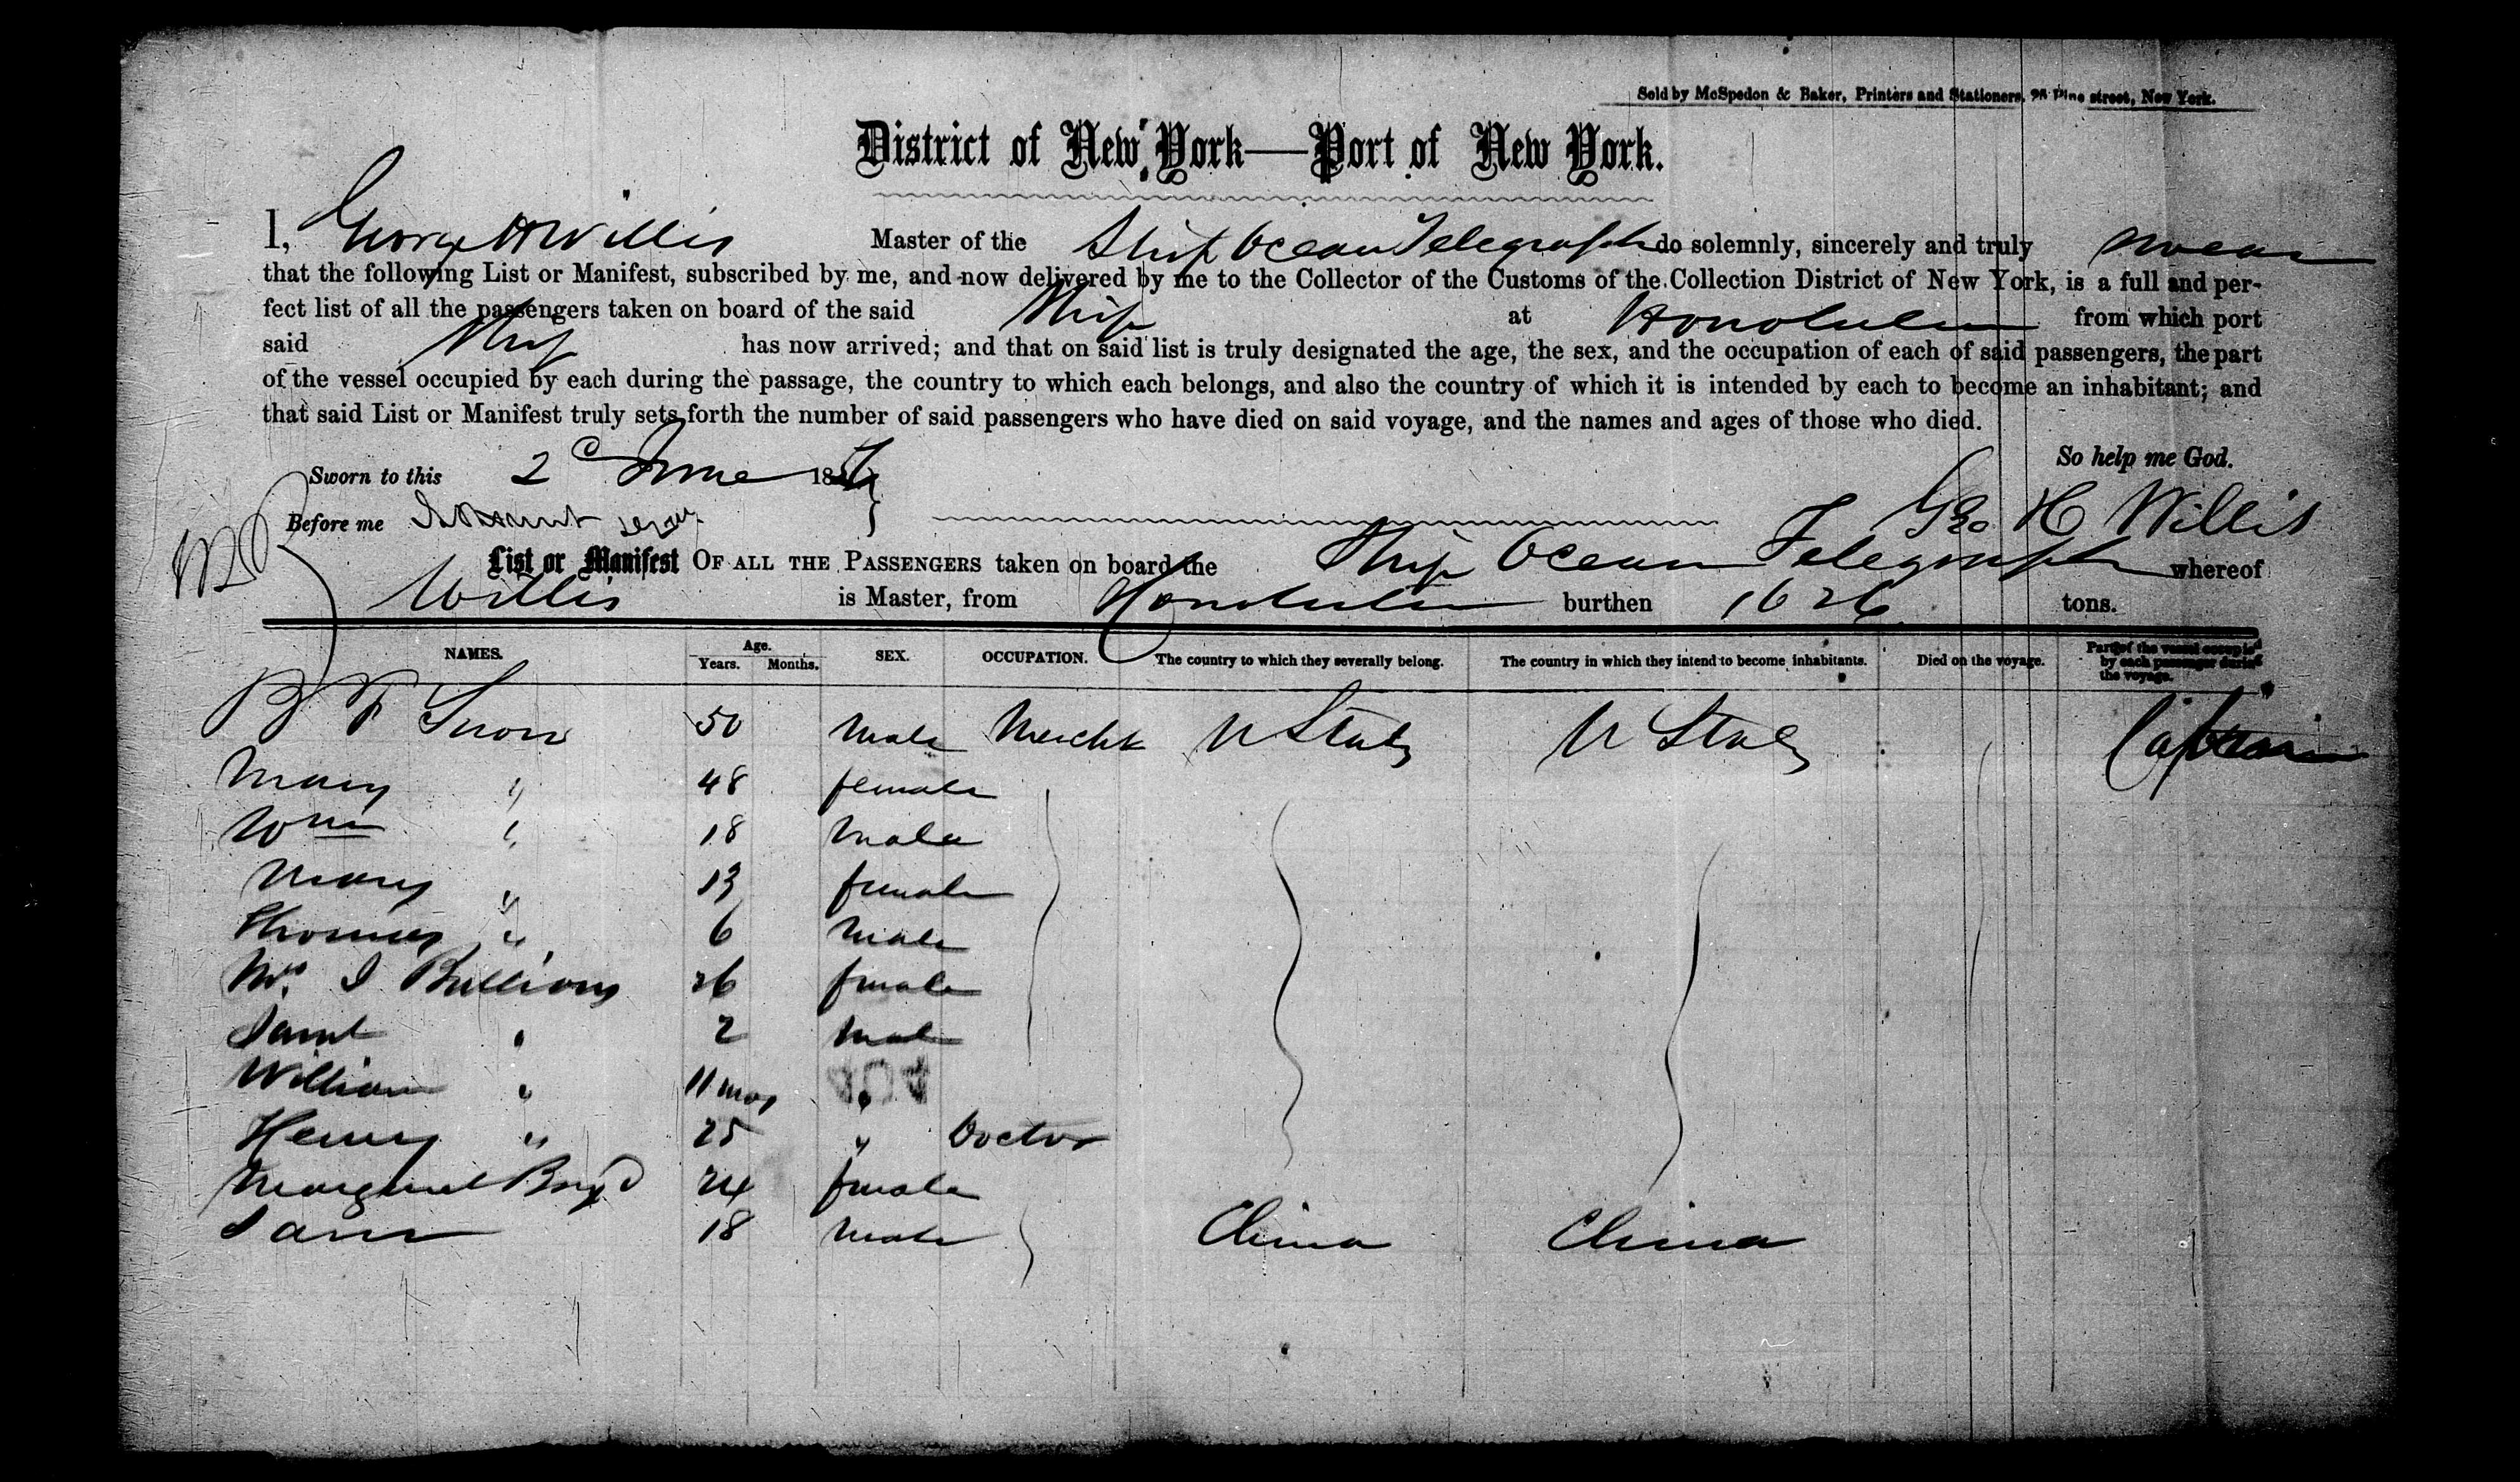 Sold by McSpedon & Baker, Printers and Stationers, 25 Pine street, New York.
District of New York—Port of New York.
I, George H Willis Master of the Ship Ocean Telegraph do solemnly, sincerely and truly swear
that the following List or Manifest, subscribed by me, and now delivered by me to the Collector of the Customs of the Collection District of New York, is a full and per-
fect list of all the passengers taken on board of the said Ship at Honolulu from which port
said Ship has now arrived; and that on said list is truly designated the age, the sex, and the occupation of each of said passengers, the part
of the vessel occupied by each during the passage, the country to which each belongs, and also the country of which it is intended by each to become an inhabitant; and
that said List or Manifest truly sets forth the number of said passengers who have died on said voyage, and the names and ages of those who died.
So help me God.
Sworn to this 2 June 185
Before me
Geo H Willis
List or Manifest OF ALL THE PASSENGERS taken on board the Ship Ocean Telegraph whereof
Willis is Master, from Honolulu burthen 1626 tons.
NAMES. Age. Years. Months. SEX. OCCUPATION. The country to which they severally belong. The country in which they intend to become inhabitants. Died on the voyage. Part of the vessel occupied by each passenger during the voyage.
B F Snow 50 Male Mercht U States U States
Mary " 48 female
Wm " 18 Male
Mary " 13 female
Thomas " 6 Male
Mrs I Bullions 26 female
Saml " 2 Male
William " 11 mos "
Henry " 25 " Doctor
Margaret Boyd 24 female
Sam 18 Male China China